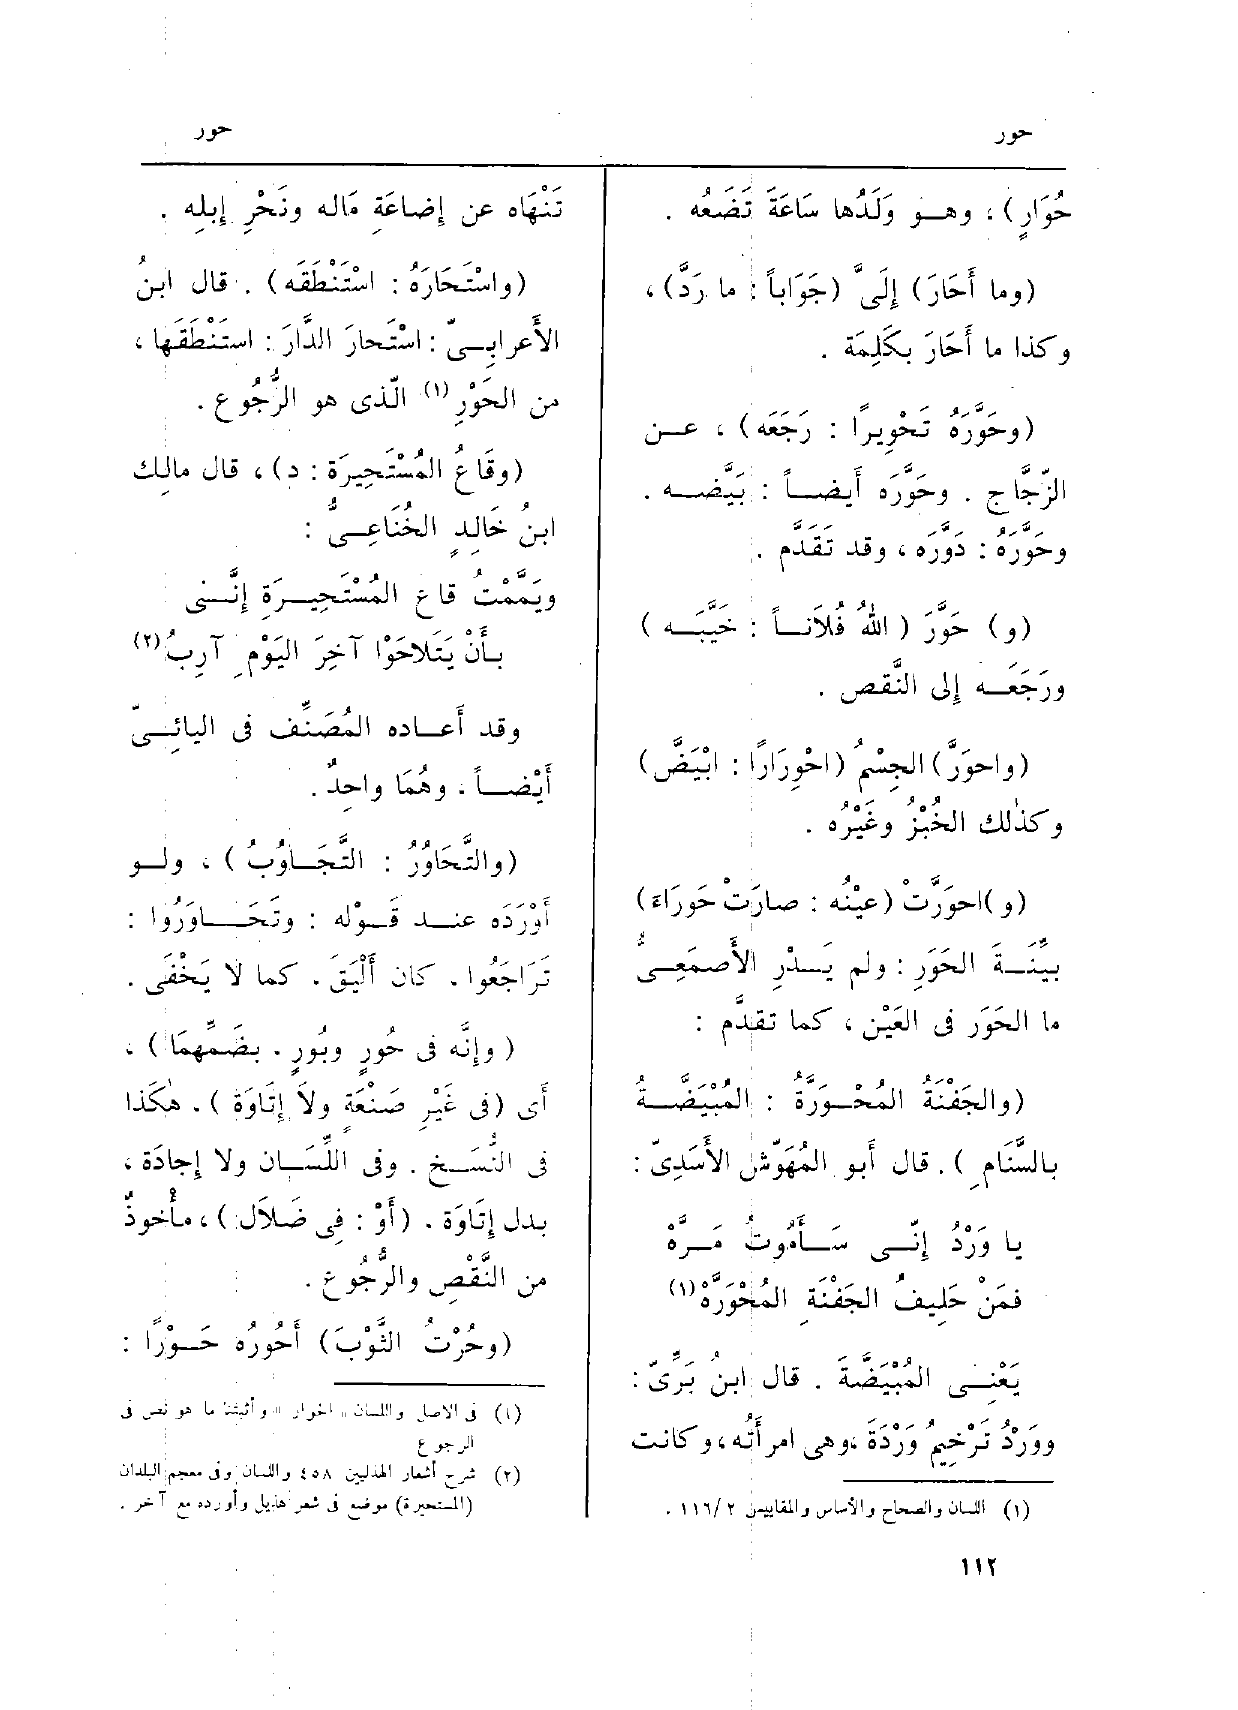 حور
حور
حُوَارٍ) ، وهــو وَلَدُها سَاعَةَ تَضَعُه .
(وما أَحَارَ) إِلَىَّ (جَوَاباً : ما رَدَّ) ،
وكذا ما أَحَارَ بكَلِمَة .
(وحَوَّرَهُ تَحْوِيرًا : رَجَعَه) ، عــن
الزّجّاج . وحَوَّرَه أَيضــاً : بَيَّضــه .
وحَوَّرَهُ : دَوَّرَه ، وقد تَقَدَّم .
(و) حَوَّرَ (اللهُ فُلاَنــاً : خَيَّبَــه )
ورَجَعَــه إلى النَّقص .
(واحوَرَّ) الجِسْمُ (احْوِرَارًا : ابْيَضَّ)
وكذٰلك الخُبْزُ وغَيْرُه .
(و)احورَّتْ (عيْنُه : صارَتْ حَوْرَاءَ)
بيِّنَــةَ الحَوَرِ : ولم يَــدْرِ الأَصمَعِــىُّ
ما الحَوَر فى العَيْن ، كما تقدَّم :
(والجَفْنَةُ المُحْــوَرَّةُ : المُبْيَضَّــةُ
بالسَّنَامِ ) . قال أَبو المُهَوّش الأَسَدِىّ :
يا وَرْدُ إِنّــى سَــأَموتُ مَــرَّهْ
فمَنْ حَلِيفُ الجَفْنَةِ المُحْوَرَّهْ (١)
يَعْنِــى المُبْيَضَّةَ . قال ابنُ بَرِّىّ :
ووَرْدُ تَرْخِيمُ وَرْدَةَ ،وهى امرأَتُه ، وكانت
(١) اللسان والصحاح والأساس والمقاييس ١١٦/٢ .
تَنْهَاه عن إِضاعَةِ مَاله ونَحْرِ إبلِه .
(واسْتَحَارَهُ : اسْتَنْطَقَه) . قال ابنُ
الأَعرابِــىّ : اسْتَحارَ الدَّارَ : استَنْطَقَها ،
من الحَوْرِ (١) الّذى هو الرُّجُوع .
(وقَاعُ المُسْتَحِيرَة : د) ، قال مالِك
ابنُ خَالِدٍ الخُنَاعِــىُّ :
ويَمَّمْتُ قاعَ المُسْتَحِيــرَةِ إِنَّــنى
بــأَنْ يَتَلاحَوْا آخِرَ اليَوْمِ آرِبُ (٢)
وقد أَعــاده المُصَنِّف فى اليائِــىّ
أَيْضــاً ، وهُمَا واحِدٌ .
(والتَّحَاوُرُ : التَّجَــاوُبُ ) ، ولــو
أَوْرَدَه عنــد قَــوْله : وتَحَــاوَرُوا :
تَرَاجَعُوا . كان أَلْيَقَ . كما لا يَخْفَى .
( وإِنَّه فى حُورٍ وبُورٍ . بضَمِّهِمَا ) ،
أَى (فى غَيْرِ صَنْعَةٍ ولاَ إِتَاوَة ) . هٰكَذا
فى النُّسَــخ . وفى اللِّسَــان ولا إجادَة ،
بدل إِتَاوَة . (أَوْ : فِى ضَلاَل) ، مأْخوذٌ
من النَّقْصِ والرُّجُوع .
(وحُرْتُ الثَّوْبَ) أَحُورُه حَــوْرًا :
(١) فى الاصل واللسان « الحوار » وأثبتنا ما هو نص فى
الرجوع
(٢) شرح أشعار الهذليين ٤٥٨ واللسان وفى معجم البلدان
(المستحيرة) موضع فى شعر هذيل وأورده مع آخر .
١١٢